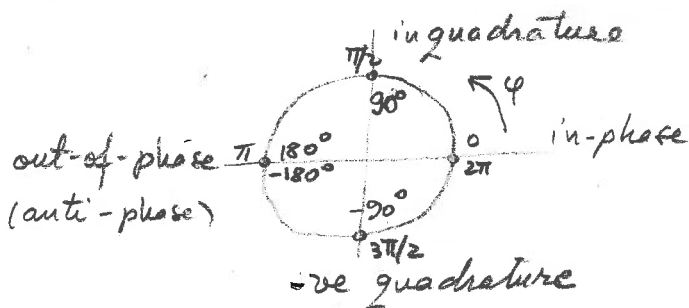 in quadrature
π/2
90°
φ
out-of-phase π 180° 0 in-phase
-180° 2π
(anti-phase)
-90°
3π/2
-ve quadrature